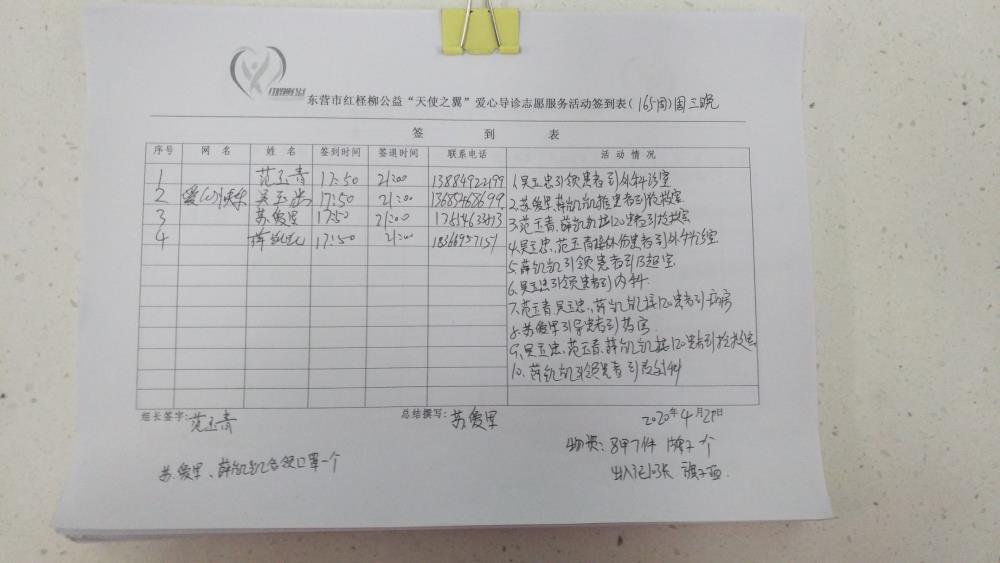 红柽柳公益
东营市红柽柳公益“天使之翼”爱心导诊志愿服务活动签到表(165周)周三晚
签 到 表
序号 网 名 姓 名 签到时间 签退时间 联系电话 活动情况
1 范玉青 17:50 21:00 13884922199 1.吴玉忠引领患者到外科诊室
2 爱(心) 吴玉忠 17:50 21:00 13685468699 2.苏爱里、薛凯凯推患者到抢救室
3 苏爱里 17:50 21:00 3.范玉青、薛凯凯接120患者到抢救室
4 薛凯凯 17:50 21:00 18366957151 4.吴玉忠、范玉青接外伤患者到外科诊室
5.薛凯凯引领患者到B超室
6.吴玉忠引领患者到内科
7.范玉青、吴玉忠、薛凯凯接120患者到病房
8.苏爱里引导患者到药房
9.吴玉忠、范玉青、薛凯凯接120患者到抢救室
10.薛凯凯引领患者到放射科
组长签字:范玉青 总结撰写:苏爱里 2020年4月29日
物资:马甲7件 牌子一个
苏爱里、薛凯凯各领口罩一个
出入证10张 旗子一面